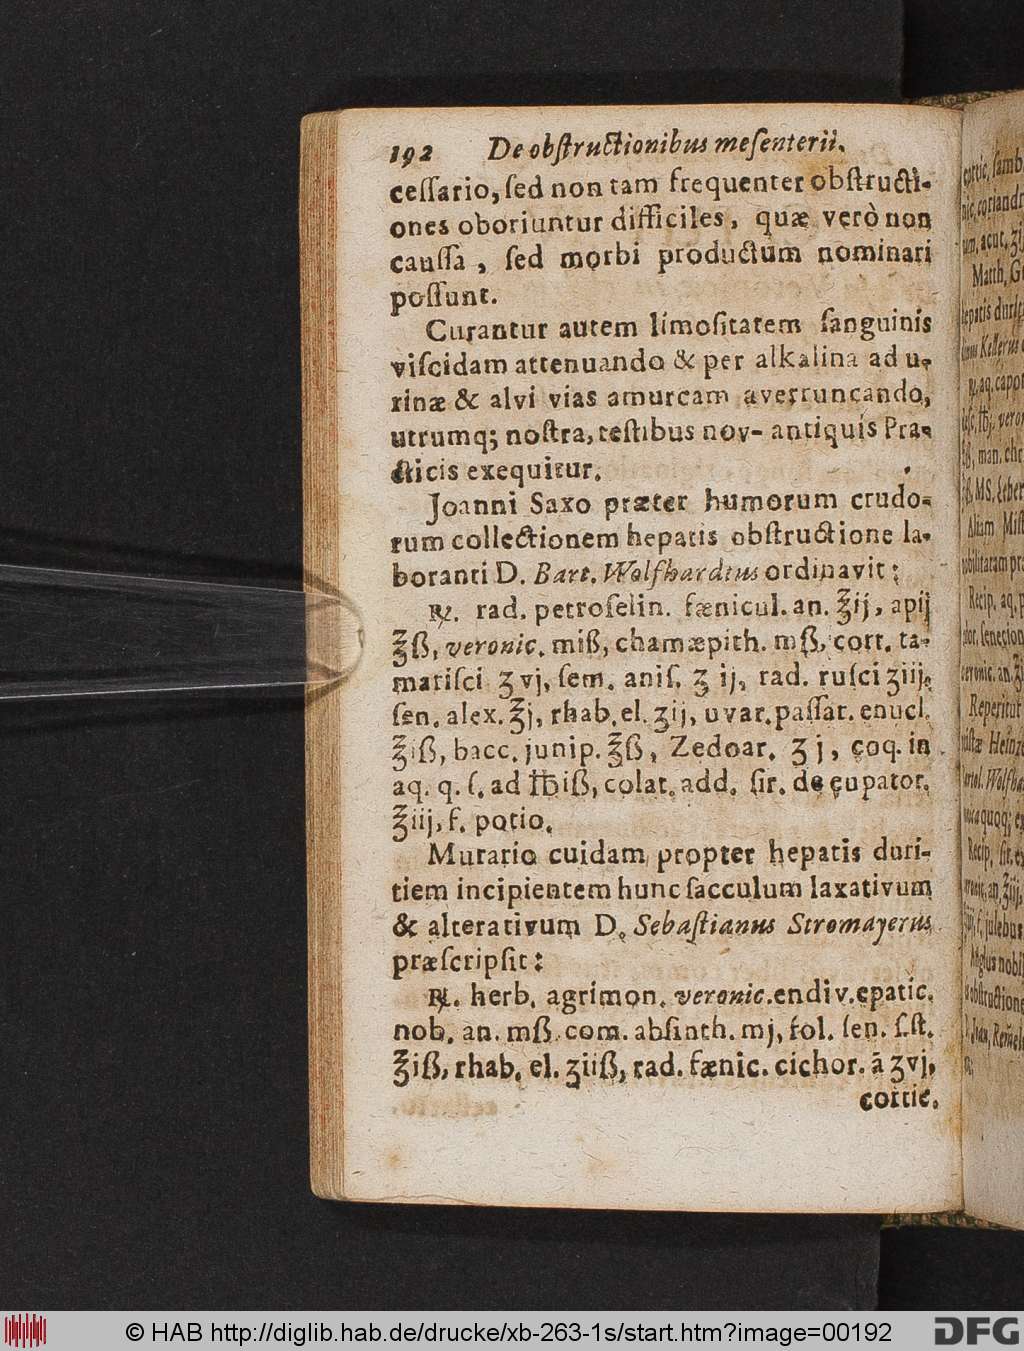 192 De obſtructionibus meſenterii.
ceſſario, ſed non tam frequenter obſtructi-
ones oboriuntur difficiles, quæ verò non
cauſſa, ſed morbi productum nominari
poſſunt.
Curantur autem limoſitatem ſanguinis
viſcidam attenuando & per alkalina ad u-
rinæ & alvi vias amurcam averruncando,
utrumq; noſtra, teſtibus nov- antiquis Pra-
cticis exequitur.
Joanni Saxo præter humorum crudo-
rum collectionem hepatis obſtructione la-
boranti D. Bart. Wolfhardtus ordinavit:
℞. rad. petroſelin. fænicul. an. ℥ij, apij
℥ß, veronic. miß, chamæpith. mß, cort. ta-
mariſci ʒvj, ſem. aniſ. ʒij, rad. ruſci ʒiij,
ſen. alex. ℥j, rhab. el. ʒij, uvar. paſſar. enucl.
℥iß, bacc. junip. ℥ß, Zedoar. ʒj, coq. in
aq. q. ſ. ad ℔iß, colat. add. ſir. de eupator.
℥iij, f. potio.
Murario cuidam propter hepatis duri-
tiem incipientem hunc ſacculum laxativum
& alterativum D. Sebaſtianus Stromayerus
præſcripſit:
℞. herb. agrimon. veronic. endiv. epatic.
nob. an. mß. com. abſinth. mj, fol. ſen. ſ. ſt.
℥iß, rhab. el. ʒiiß, rad. fænic. cichor. ā ʒvj,
cortic.
© HAB http://diglib.hab.de/drucke/xb-263-1s/start.htm?image=00192
DFG